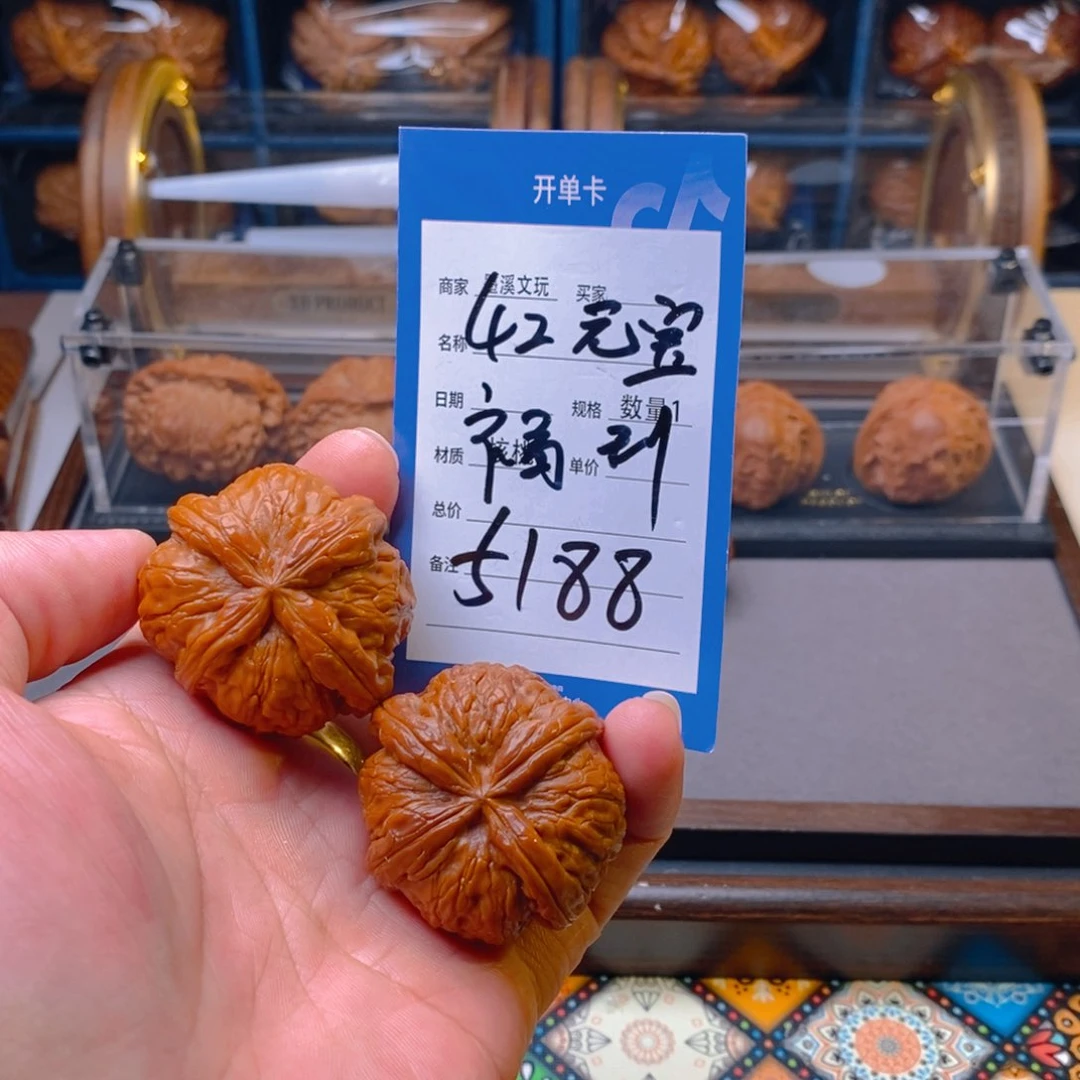 开单卡
商家 墨溪文玩 买家
名称 42元宝
日期 规格 数量1
材质 核桃 单价
总价
备注 5188